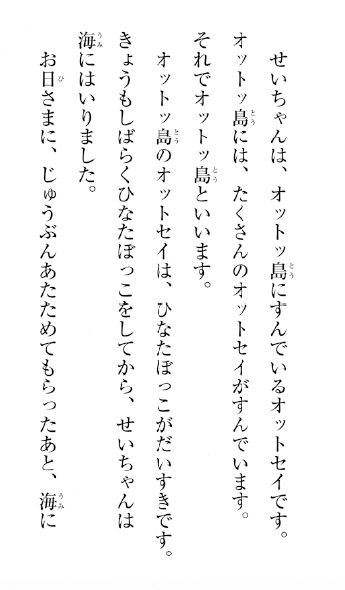 せいちゃんは、オットッ島にすんでいるオットセイです。
オットッ島には、たくさんのオットセイがすんでいます。
それでオットッ島といいます。
オットッ島のオットセイは、ひなたぼっこがだいすきです。
きょうもしばらくひなたぼっこをしてから、せいちゃんは
海にはいりました。
お日さまに、じゅうぶんあたためてもらったあと、海に